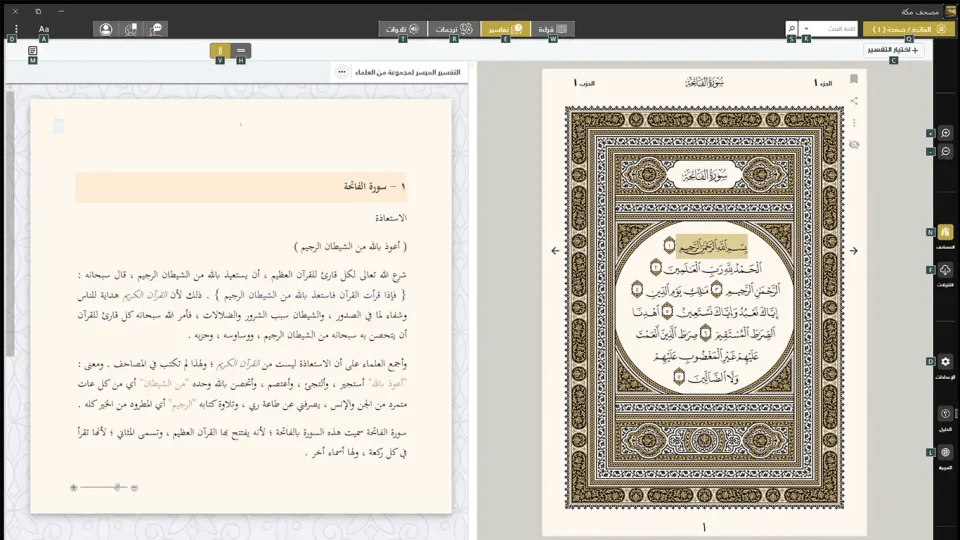 مصحف مكة
الفاتحة / صفحة (١)
كلمة البحث
قراءة
تفاسير
ترجمات
تلاوات
Aa
Q
K
S
W
E
R
T
A
D
+ اختيار التفسير
C
H
V
M
التفسير الميسر لمجموعة من العلماء
الجزء ١
سُورَةُ الفَاتِحَةِ
الحزب ١
سُورَةُ الفَاتِحَةِ
بِسْمِ ٱللَّهِ ٱلرَّحْمَٰنِ ٱلرَّحِيمِ ١
ٱلْحَمْدُ لِلَّهِ رَبِّ ٱلْعَٰلَمِينَ ٢
ٱلرَّحْمَٰنِ ٱلرَّحِيمِ ٣ مَٰلِكِ يَوْمِ ٱلدِّينِ ٤
إِيَّاكَ نَعْبُدُ وَإِيَّاكَ نَسْتَعِينُ ٥ ٱهْدِنَا
ٱلصِّرَٰطَ ٱلْمُسْتَقِيمَ ٦ صِرَٰطَ ٱلَّذِينَ أَنْعَمْتَ
عَلَيْهِمْ غَيْرِ ٱلْمَغْضُوبِ عَلَيْهِمْ
وَلَا ٱلضَّآلِّينَ ٧
١
١ – سورة الفاتحة
الاستعاذة
( أعوذ بالله من الشيطان الرجيم )
شرع الله تعالى لكل قارئ للقرآن العظيم ، أن يستعيذ بالله من الشيطان الرجيم ، قال سبحانه :
{ فإذا قرأت القرآن فاستعذ بالله من الشيطان الرجيم } . ذلك لأن القرآن الكريم هداية للناس
وشفاء لما في الصدور ، والشيطان سبب الشرور والضلالات ، فأمر الله سبحانه كل قارئ للقرآن
أن يتحصن به سبحانه من الشيطان الرجيم ، ووساوسه ، وحزبه .
وأجمع العلماء على أن الاستعاذة ليست من القرآن الكريم ؛ ولهذا لم تكتب في المصاحف . ومعنى :
"أعوذ بالله" أستجير ، وألتجئ ، وأعتصم ، وأتحصن بالله وحده "من الشيطان" أي من كل عات
متمرد من الجن والإنس ، يصرفني عن طاعة ربي ، وتلاوة كتابه "الرجيم" أي المطرود من الخير كله .
سورة الفاتحة سميت هذه السورة بالفاتحة ؛ لأنه يفتتح بها القرآن العظيم ، وتسمى المثاني ؛ لأنها تقرأ
في كل ركعة ، ولها أسماء أخر .
+
-
N
المصاحف
F
التنزيلات
D
الإعدادات
الدليل
L
العربية